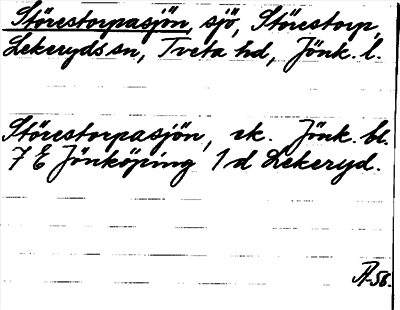 Störestorpasjön, sjö, Störestorp,
Lekeryds sn, Tveta hd, Jönk. l.
Störestorpasjön, ek. Jönk. bl.
7 E Jönköping 1 d Lekeryd.
Å-56.